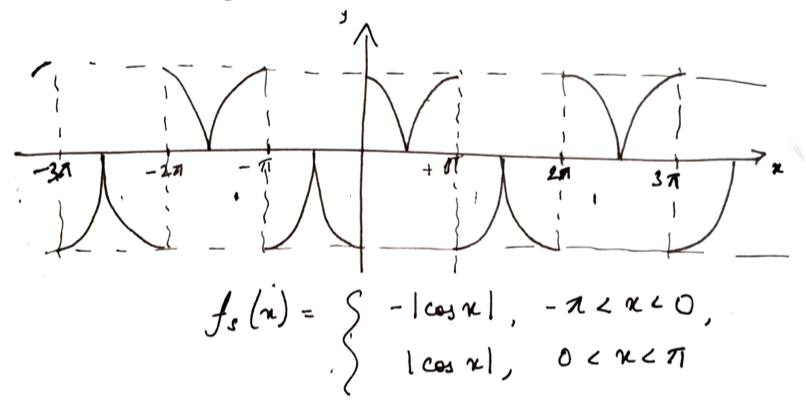 y
-3π -2π -π +π 2π 3π x
fₛ(x) = { -|cos x|, -π < x < 0,
|cos x|, 0 < x < π